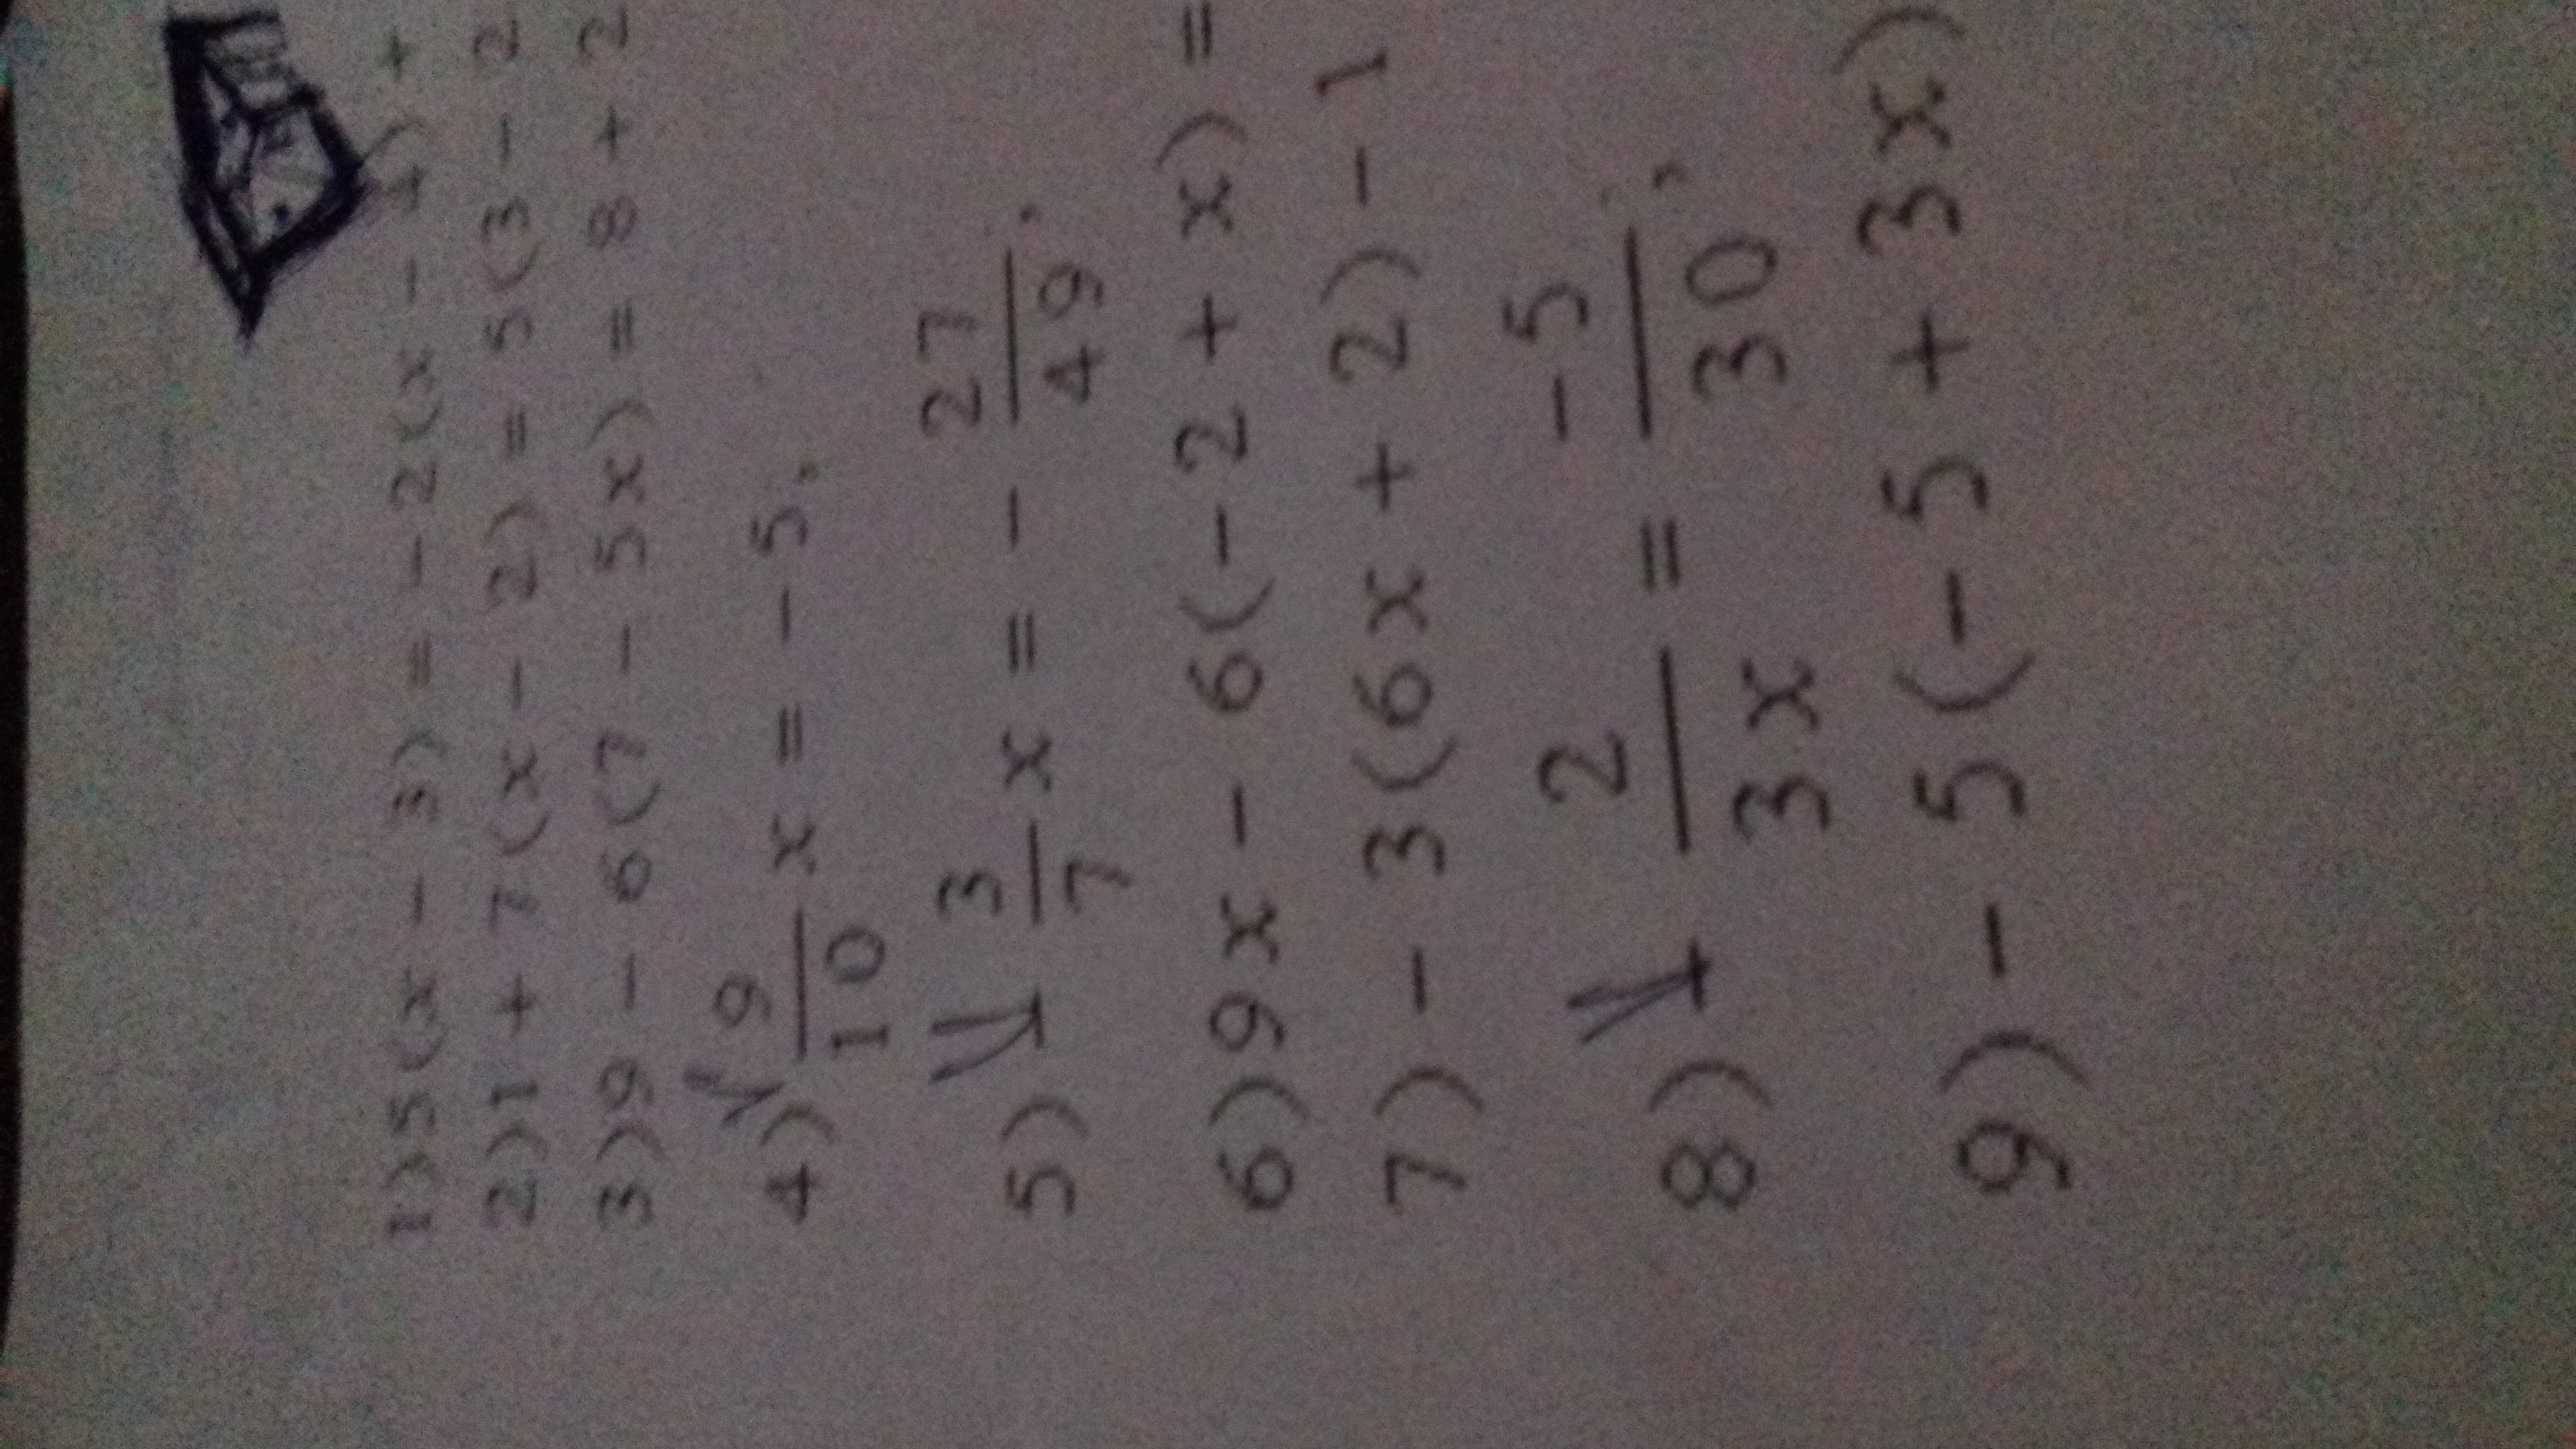 1) 5(x - 3) = - 2(x - 1) +
2) 1 + 7(x - 2) = 5(3 - 2
3) 9 - 6(7 - 5x) = 8 + 2
4) 9/10 x = - 5;
5) 3/7 x = - 27/49;
6) 9x - 6(-2 + x) =
7) - 3(6x + 2) - 1
8) 2/3x = -5/30;
9) - 5(-5 + 3x)